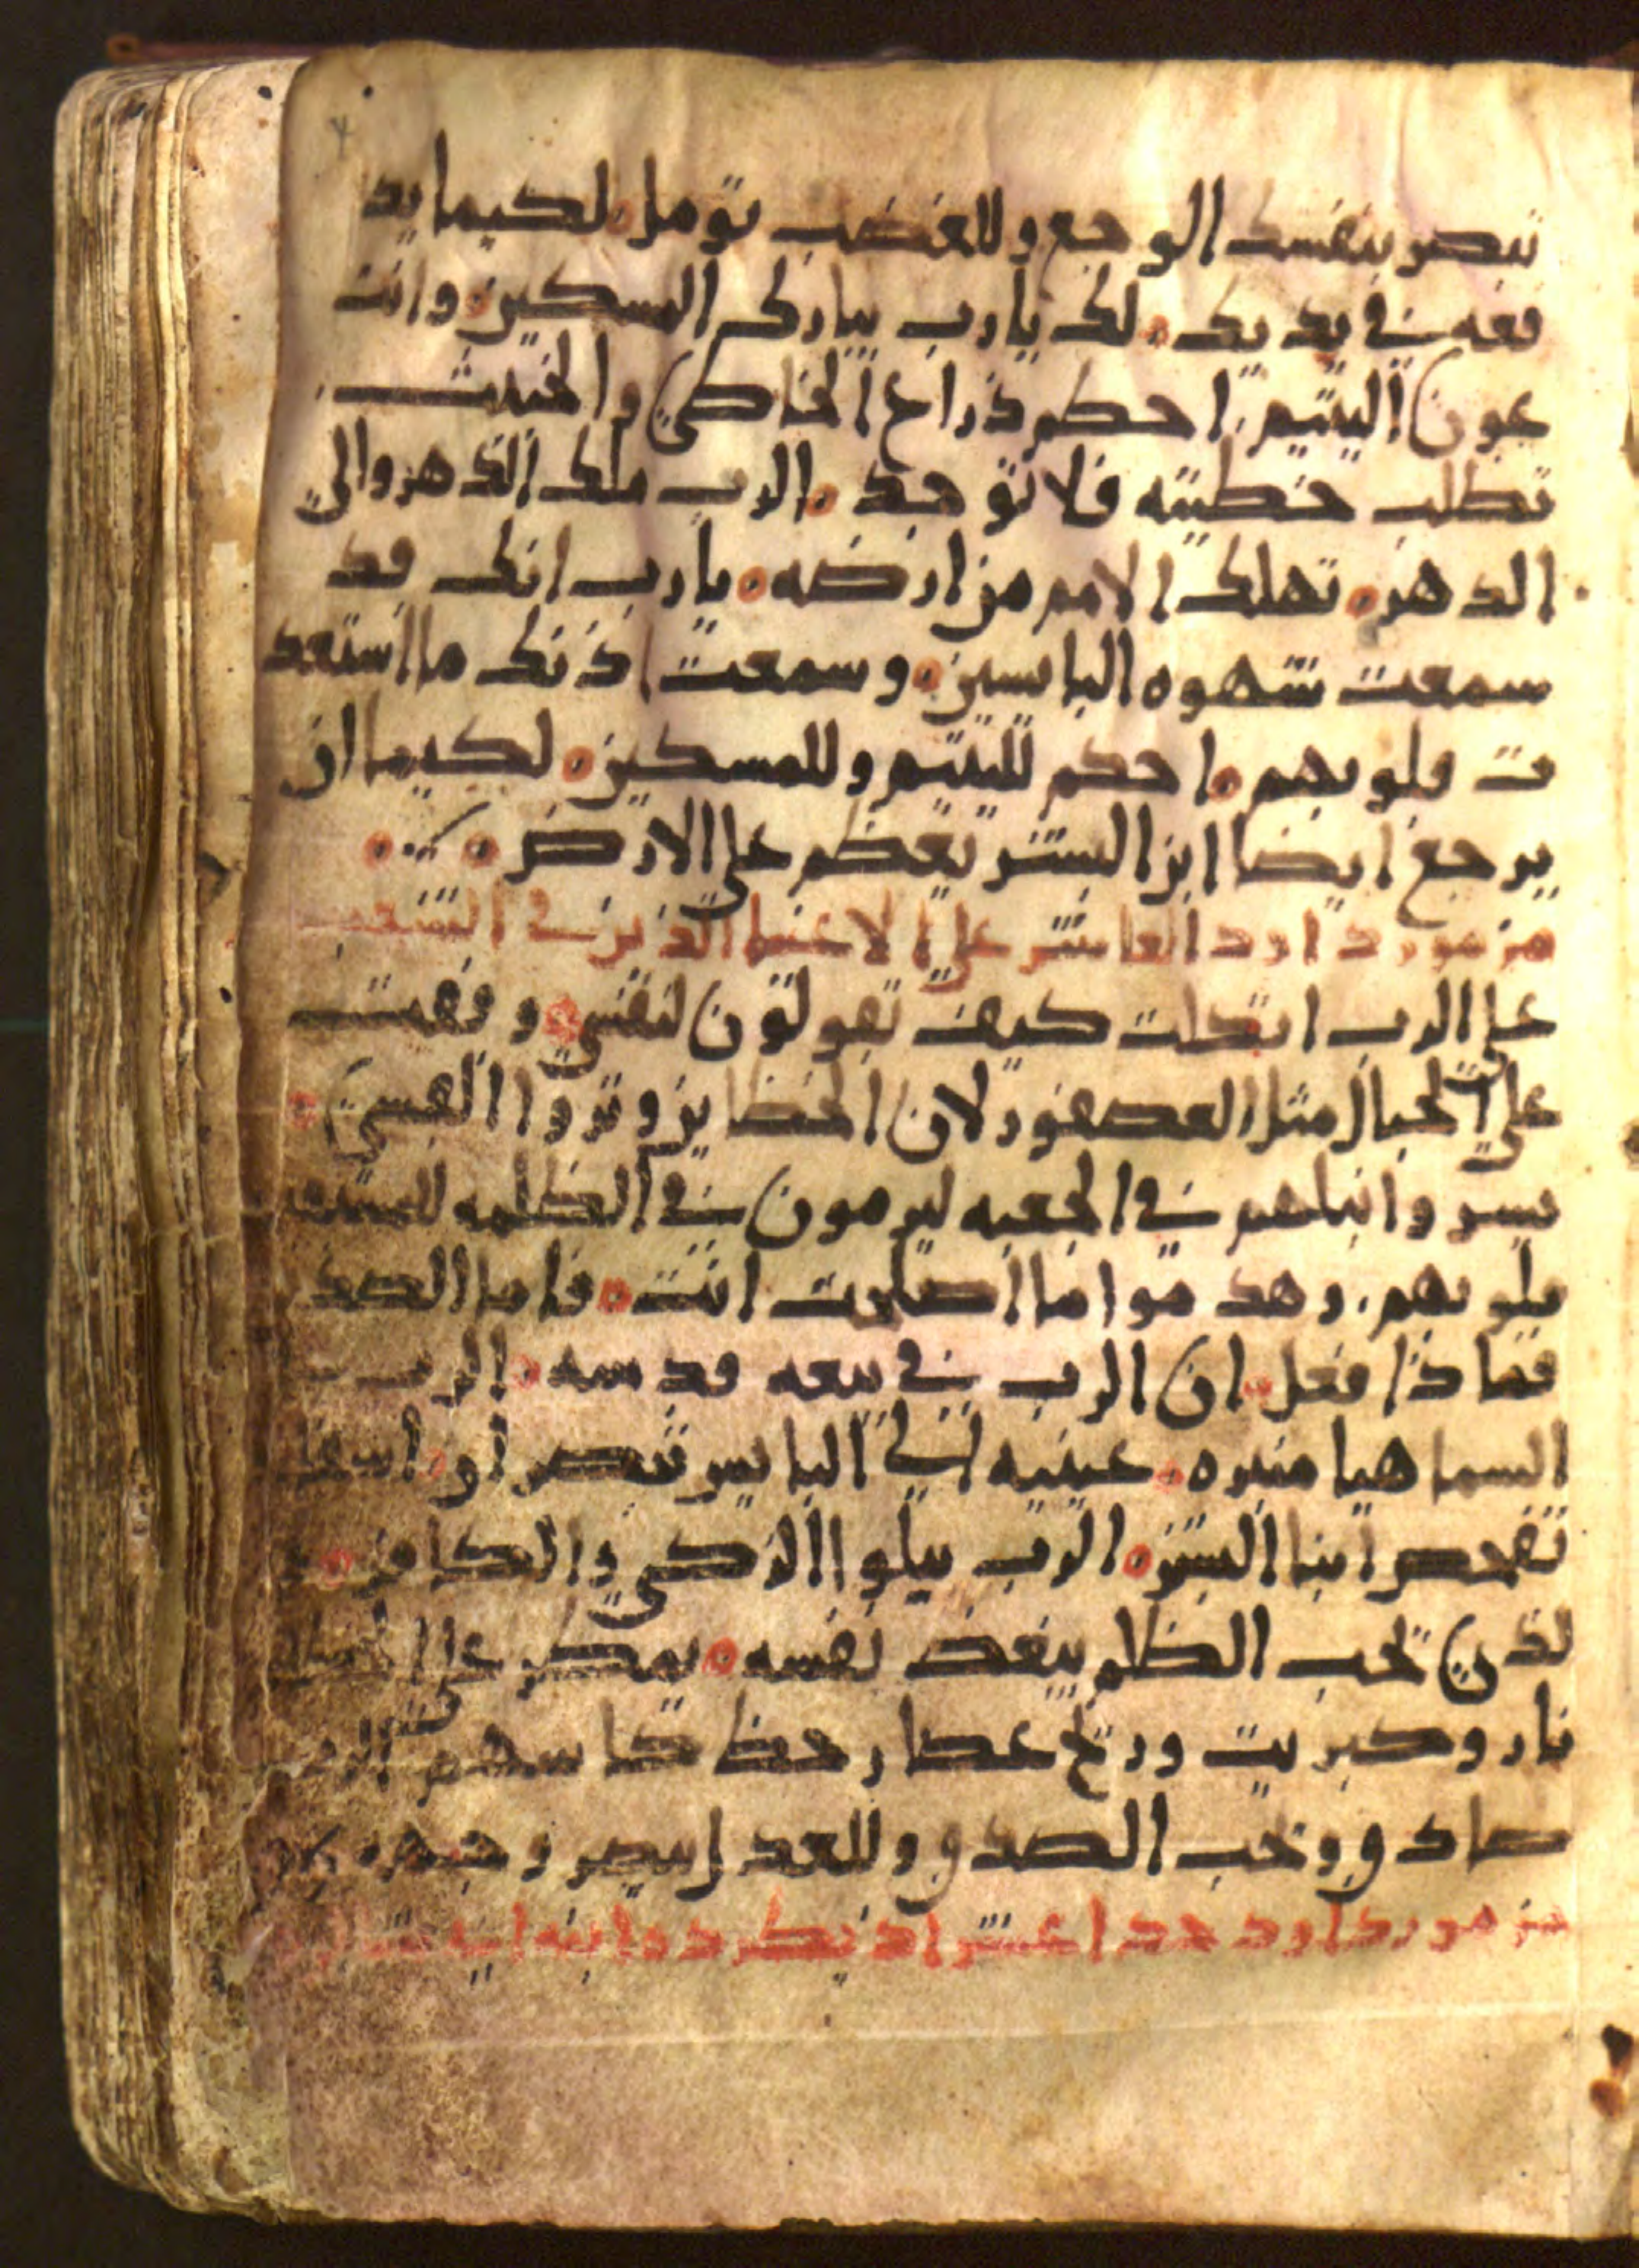 تبصر بنفسك الوجع وللغضب تومل لكيما يد
فعه في يديك لك يارب يبارك المسكين وانت
عون اليتيم احطم ذراع الخاطي والخبيث
تطلب خطيته فلا توجد الرب ملك الدهر والي
الدهر تهلك الامم من ارضه يارب انك قد
سمعت شهوه البايسين وسمعت اذنك ما استعد
ت قلوبهم احكم لليتيم وللمسكين لكيما ان
يرجع ايضا ابن البشر يعظم علي الارض
مزمور داود العاشر علي الاغنيا الذين في الشعب
علي الرب اتكلت كيف تقولون لنفسي وقفت
علي الجبال مثل العصفور لان الخطايين وتروا القسي
يسروا نبلهم في الجعبه ليرمون في الظلمه
قلوبهم وهدموا ما اصلحت انت فاما الصد
فماذا فعل ان الرب في بيعه قدسه الرب
السما هيا منبره عينيه الي البايس تنصر او
تفحص ابنا البشر الرب يبلوا الزكي والكافر
لذي يحب الظلم يبغض نفسه يمطر علي
نار وكبريت وريح عصار حظ كاسهم
صادق ويحب الصدق وللعدل يبصر وجهه
مزمور داود حدا عشر